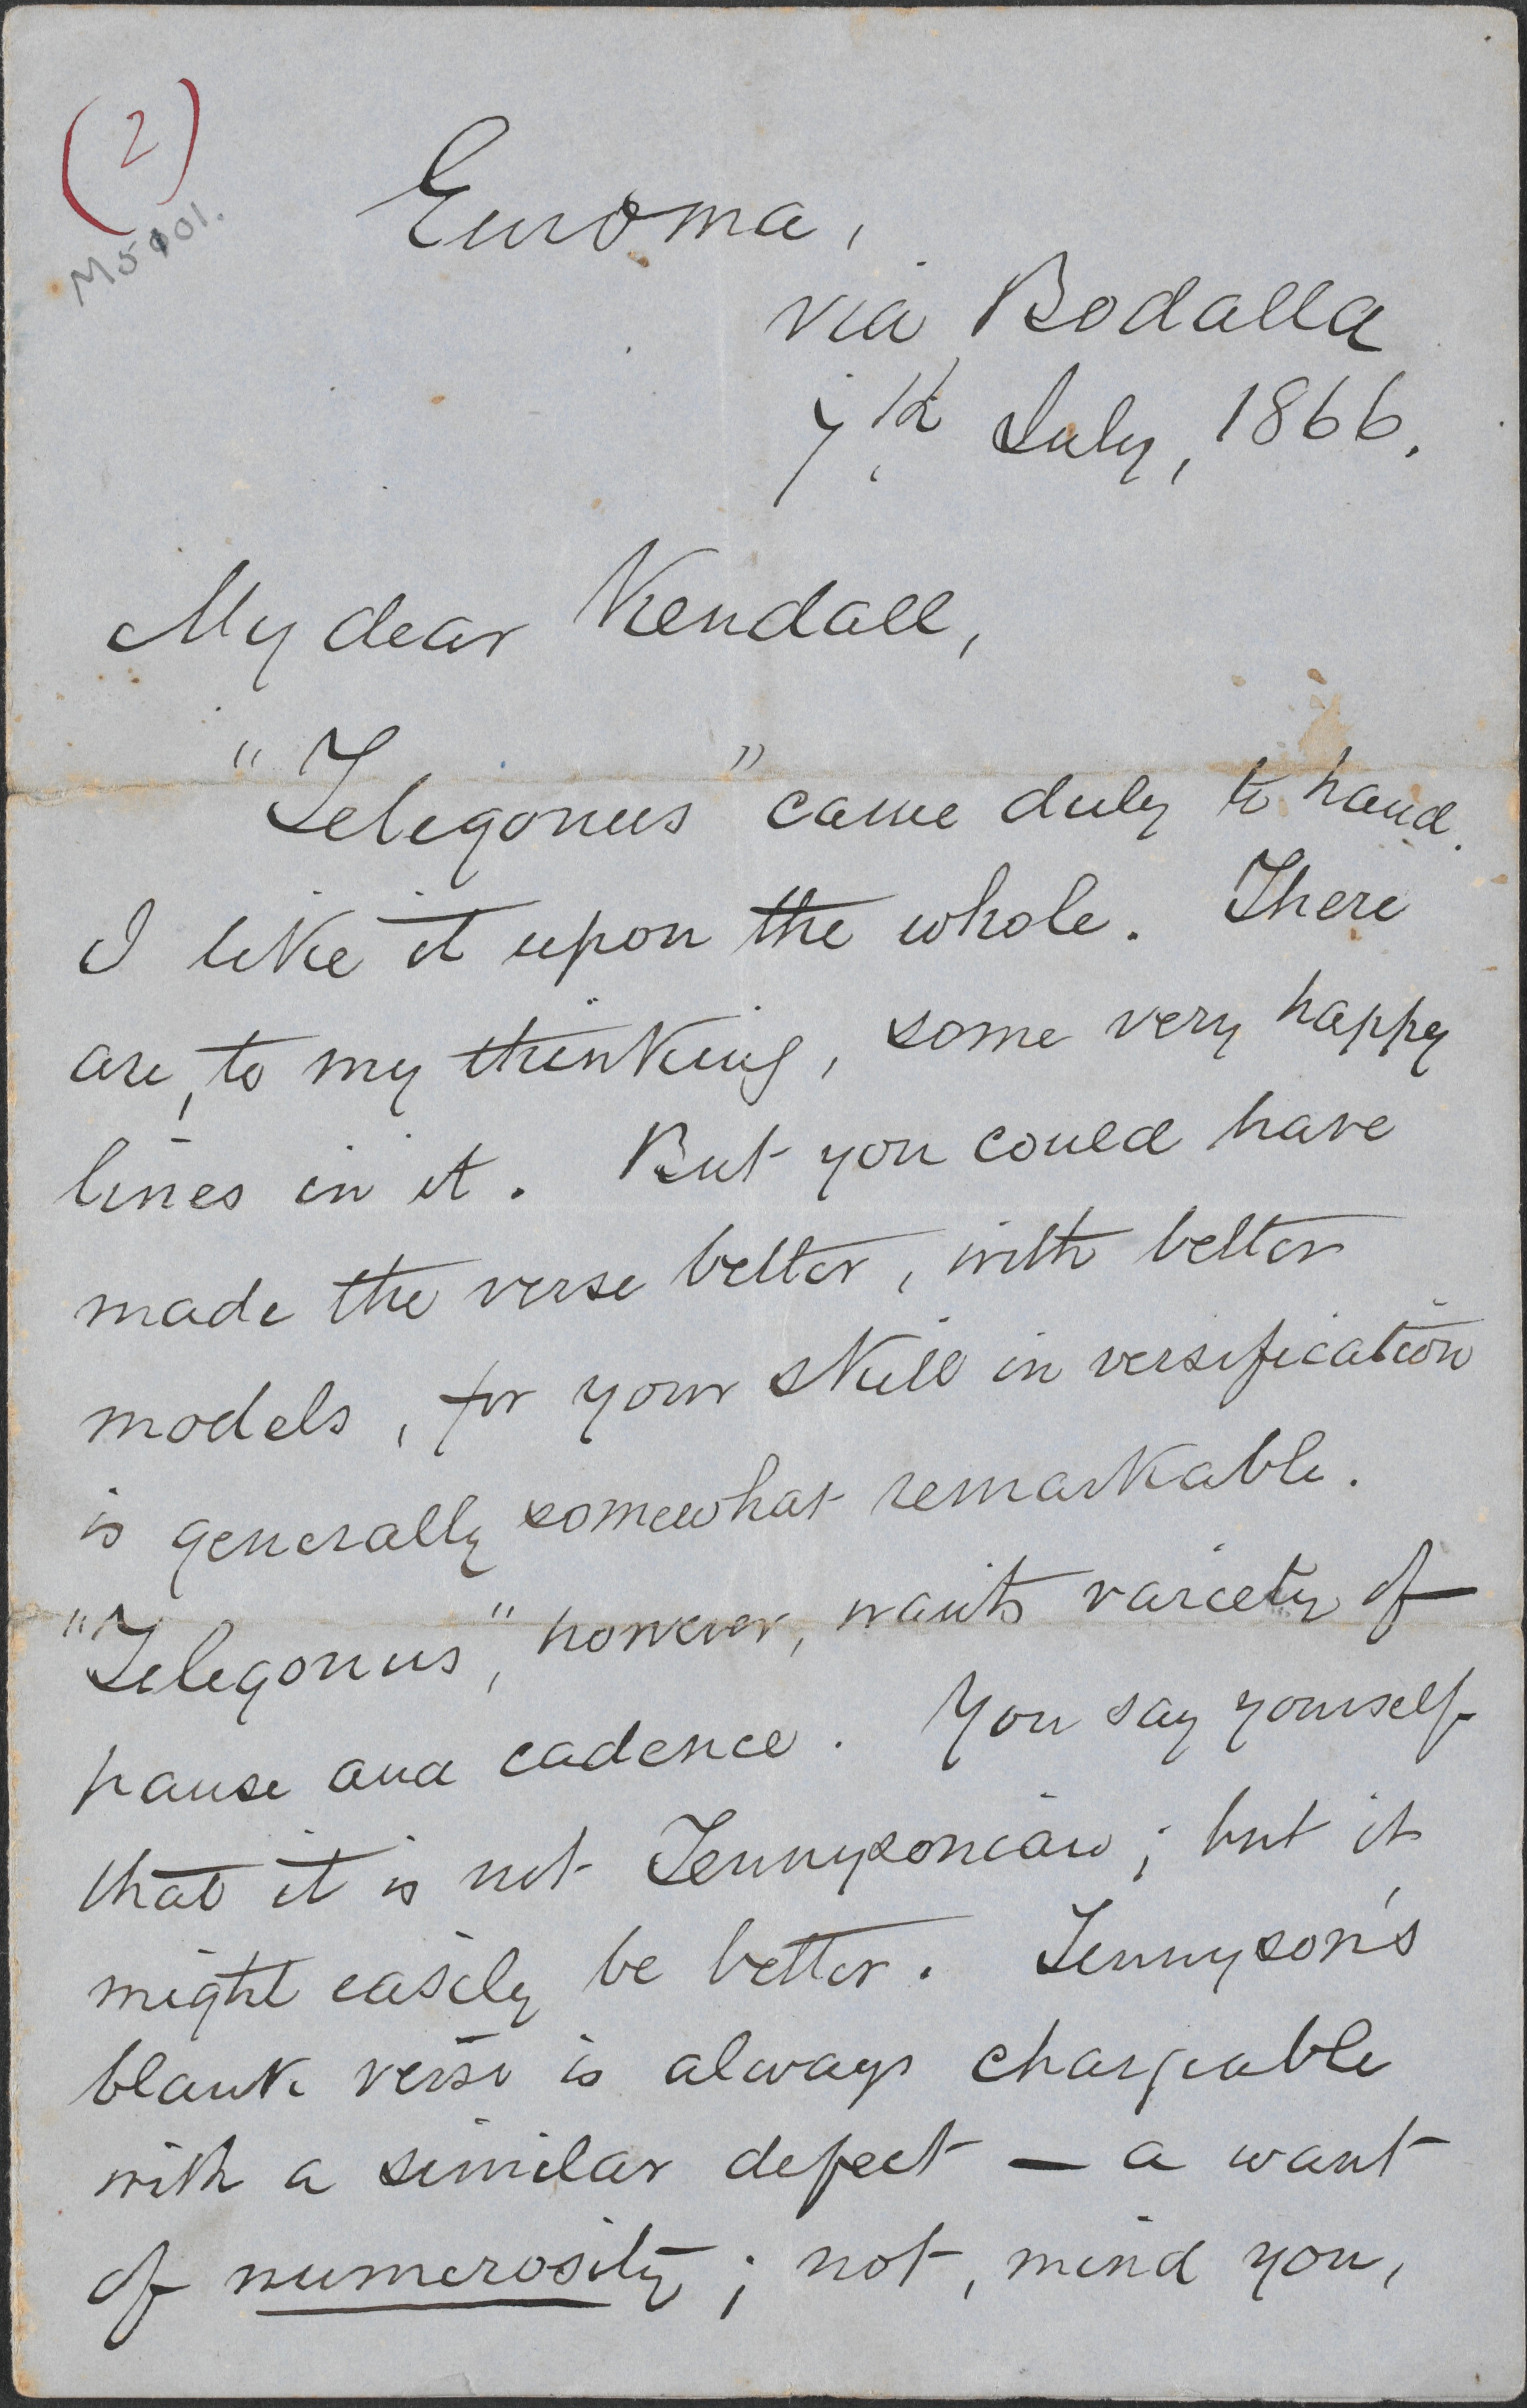 (2)
M5101.
Euroma,
via Bodalla
7th July, 1866.
My dear Kendall,
"Telegonus" came duly to hand.
I like it upon the whole. There
are, to my thinking, some very happy
lines in it. But you could have
made the verse better, with better
models, for your skill in versification
is generally somewhat remarkable.
"Telegonus", however, wants variety of
pause and cadence. You say yourself
that it is not Tennysonian; but it
might easily be better. Tennyson's
blank verse is always chargeable
with a similar defect — a want
of numerosity; not, mind you,